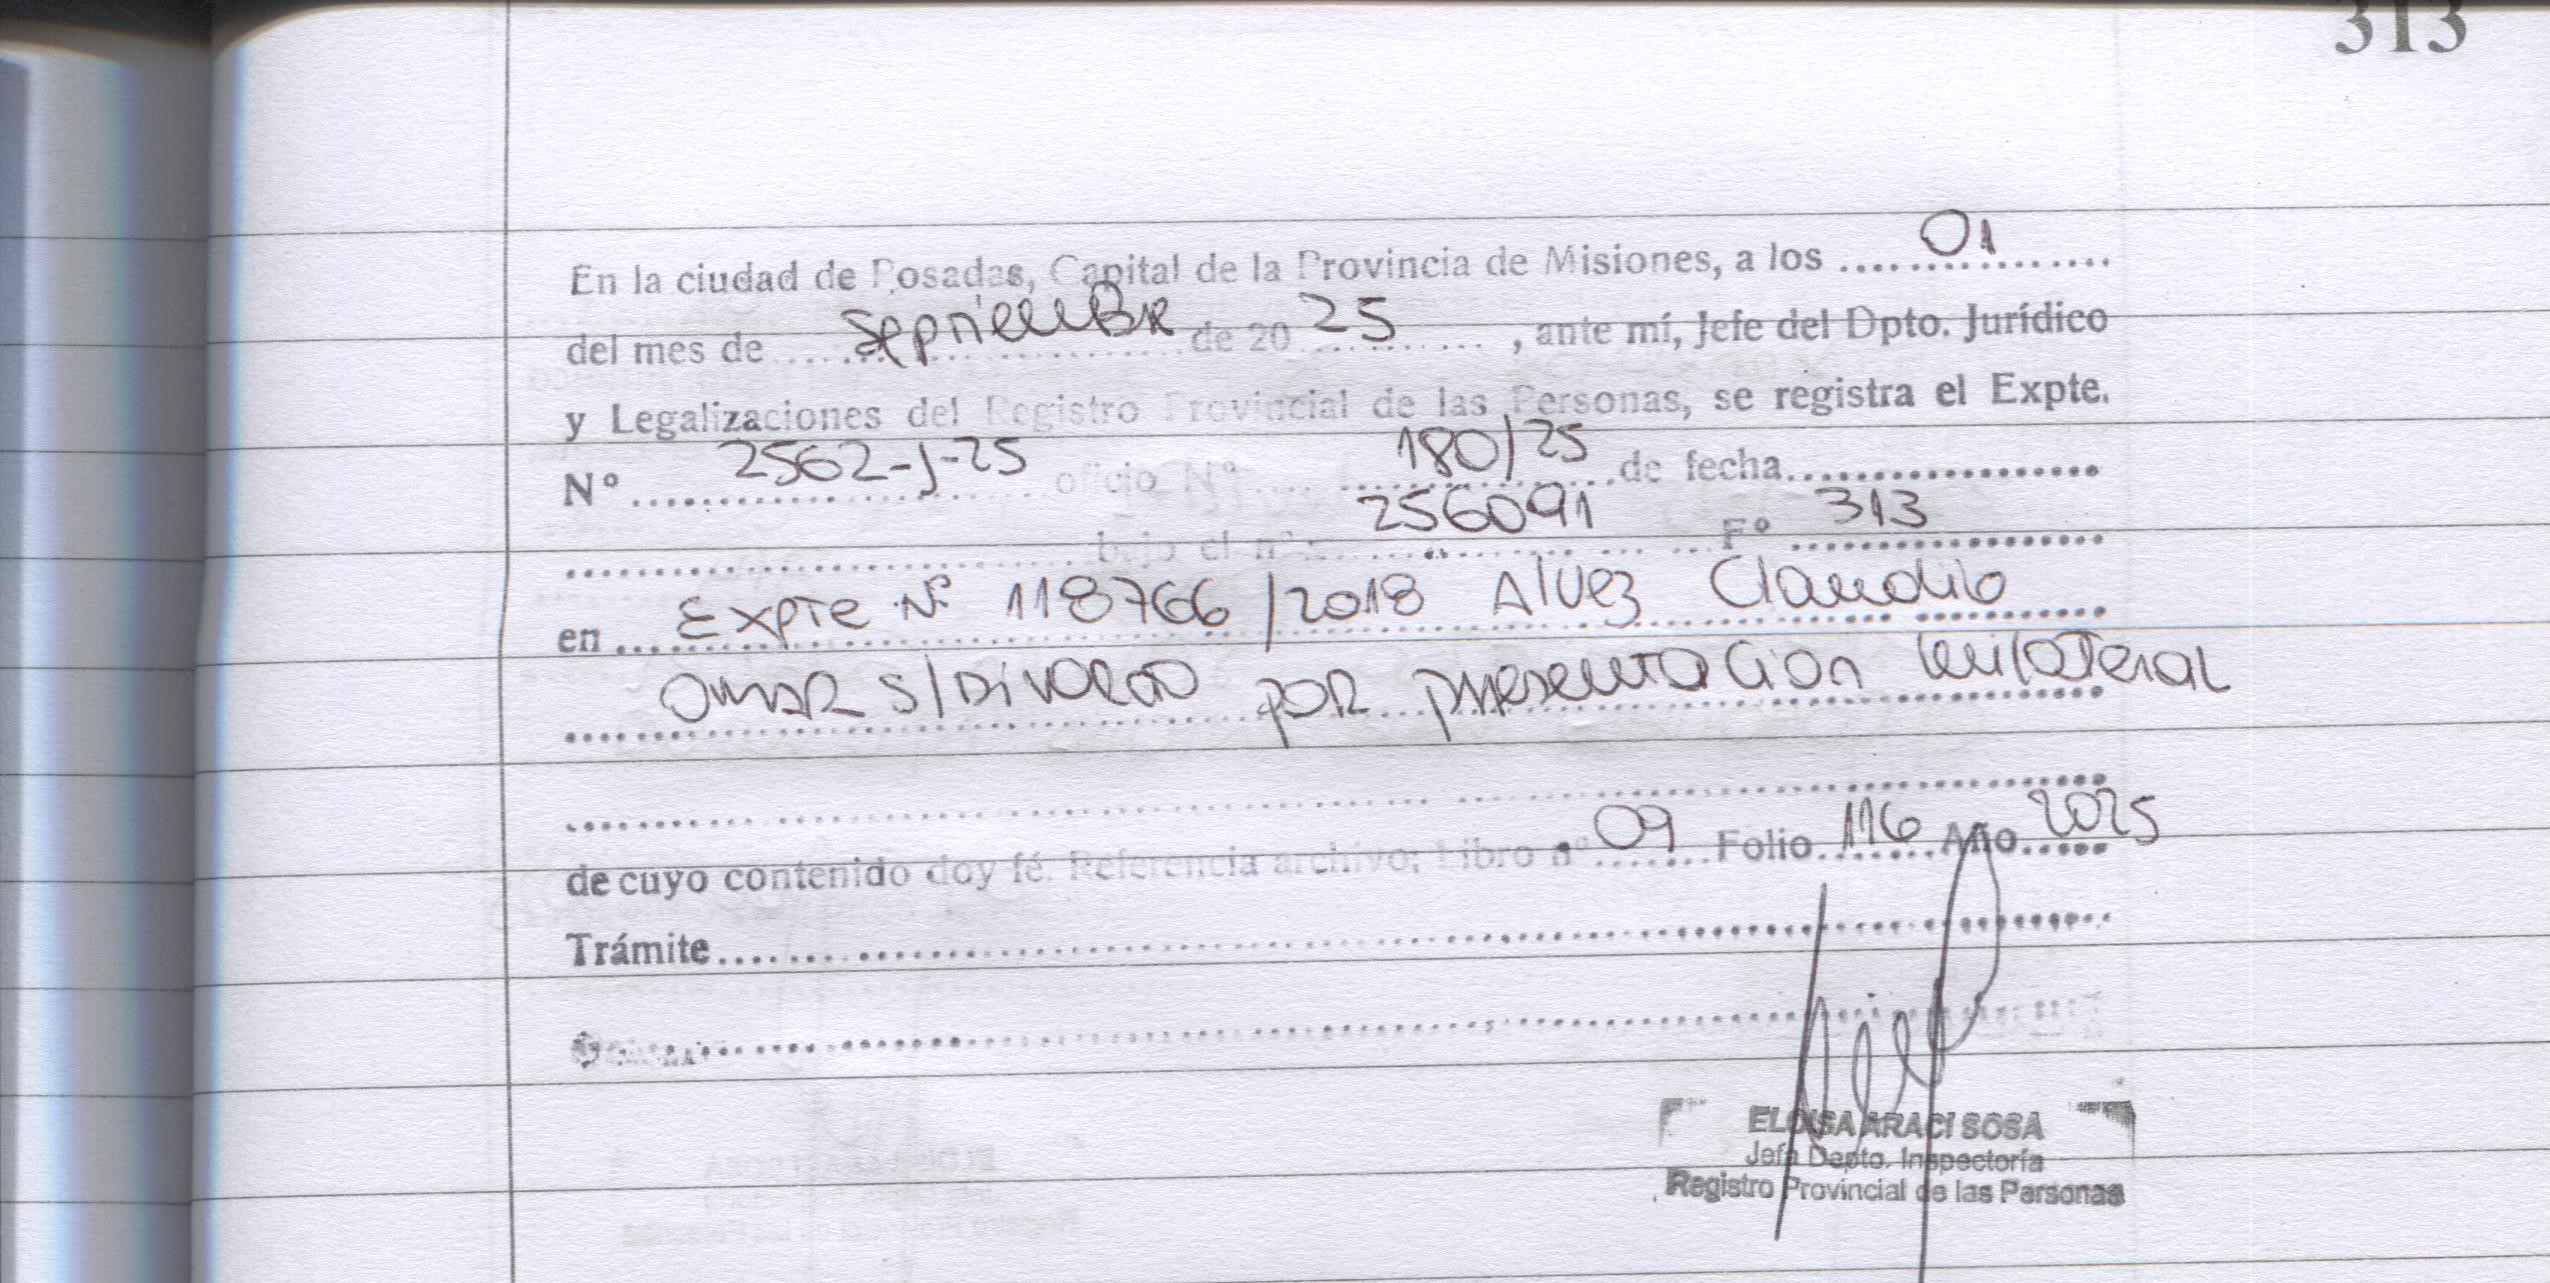 313
En la ciudad de Posadas, Capital de la Provincia de Misiones, a los .... 01 ....
del mes de ...... Septiembre ...... de 20 25 ......, ante mí, Jefe del Dpto. Jurídico
y Legalizaciones del Registro Provincial de las Personas, se registra el Expte.
Nº ...... 2562-J-25 ...... oficio Nº ...... 180/25 ...... de fecha ......
...... bajo el nº: ...... 256091 ...... Fº 313 ......
en ... Expte Nº 118766/2018 Alvez Claudio
Omar S/Divorcio por presentación unilateral
de cuyo contenido doy fé. Referencia archivo: Libro nº 09 Folio 116 Año 2025
Trámite ......
ELOISA ARACI SOSA
Jefa Depto. Inspectoría
Registro Provincial de las Personas